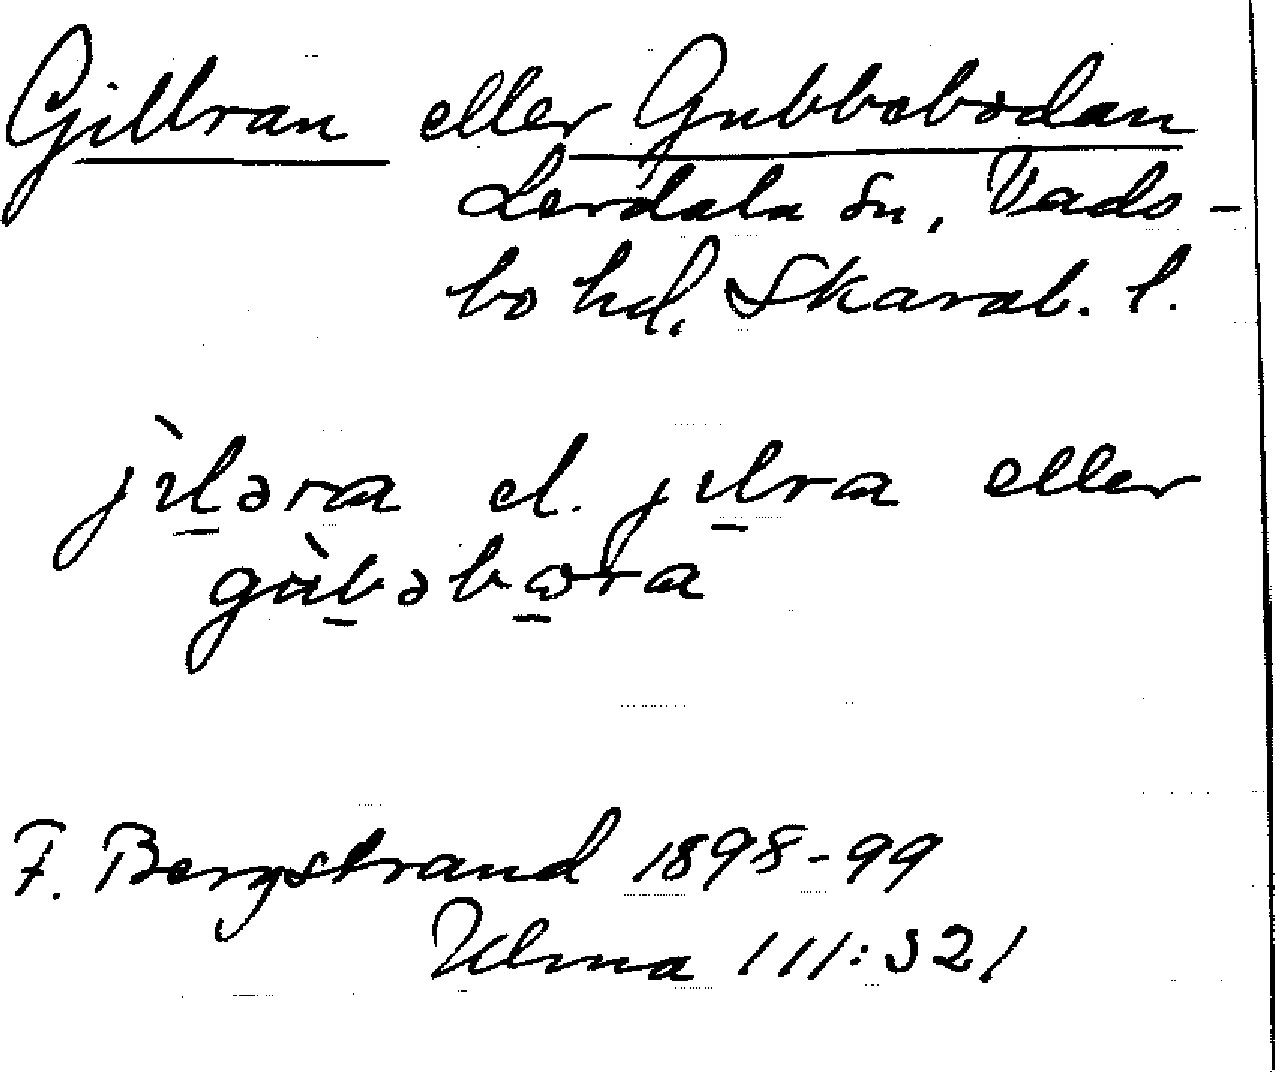 Gillran eller Gubbebodan
Lerdala sn, Vads-
bo hd, Skarab. l.
jìl̠əra el. jıl̠ra eller
gùb̠əbω̠ra
F. Bergstrand 1898-99
Ulma 111:321